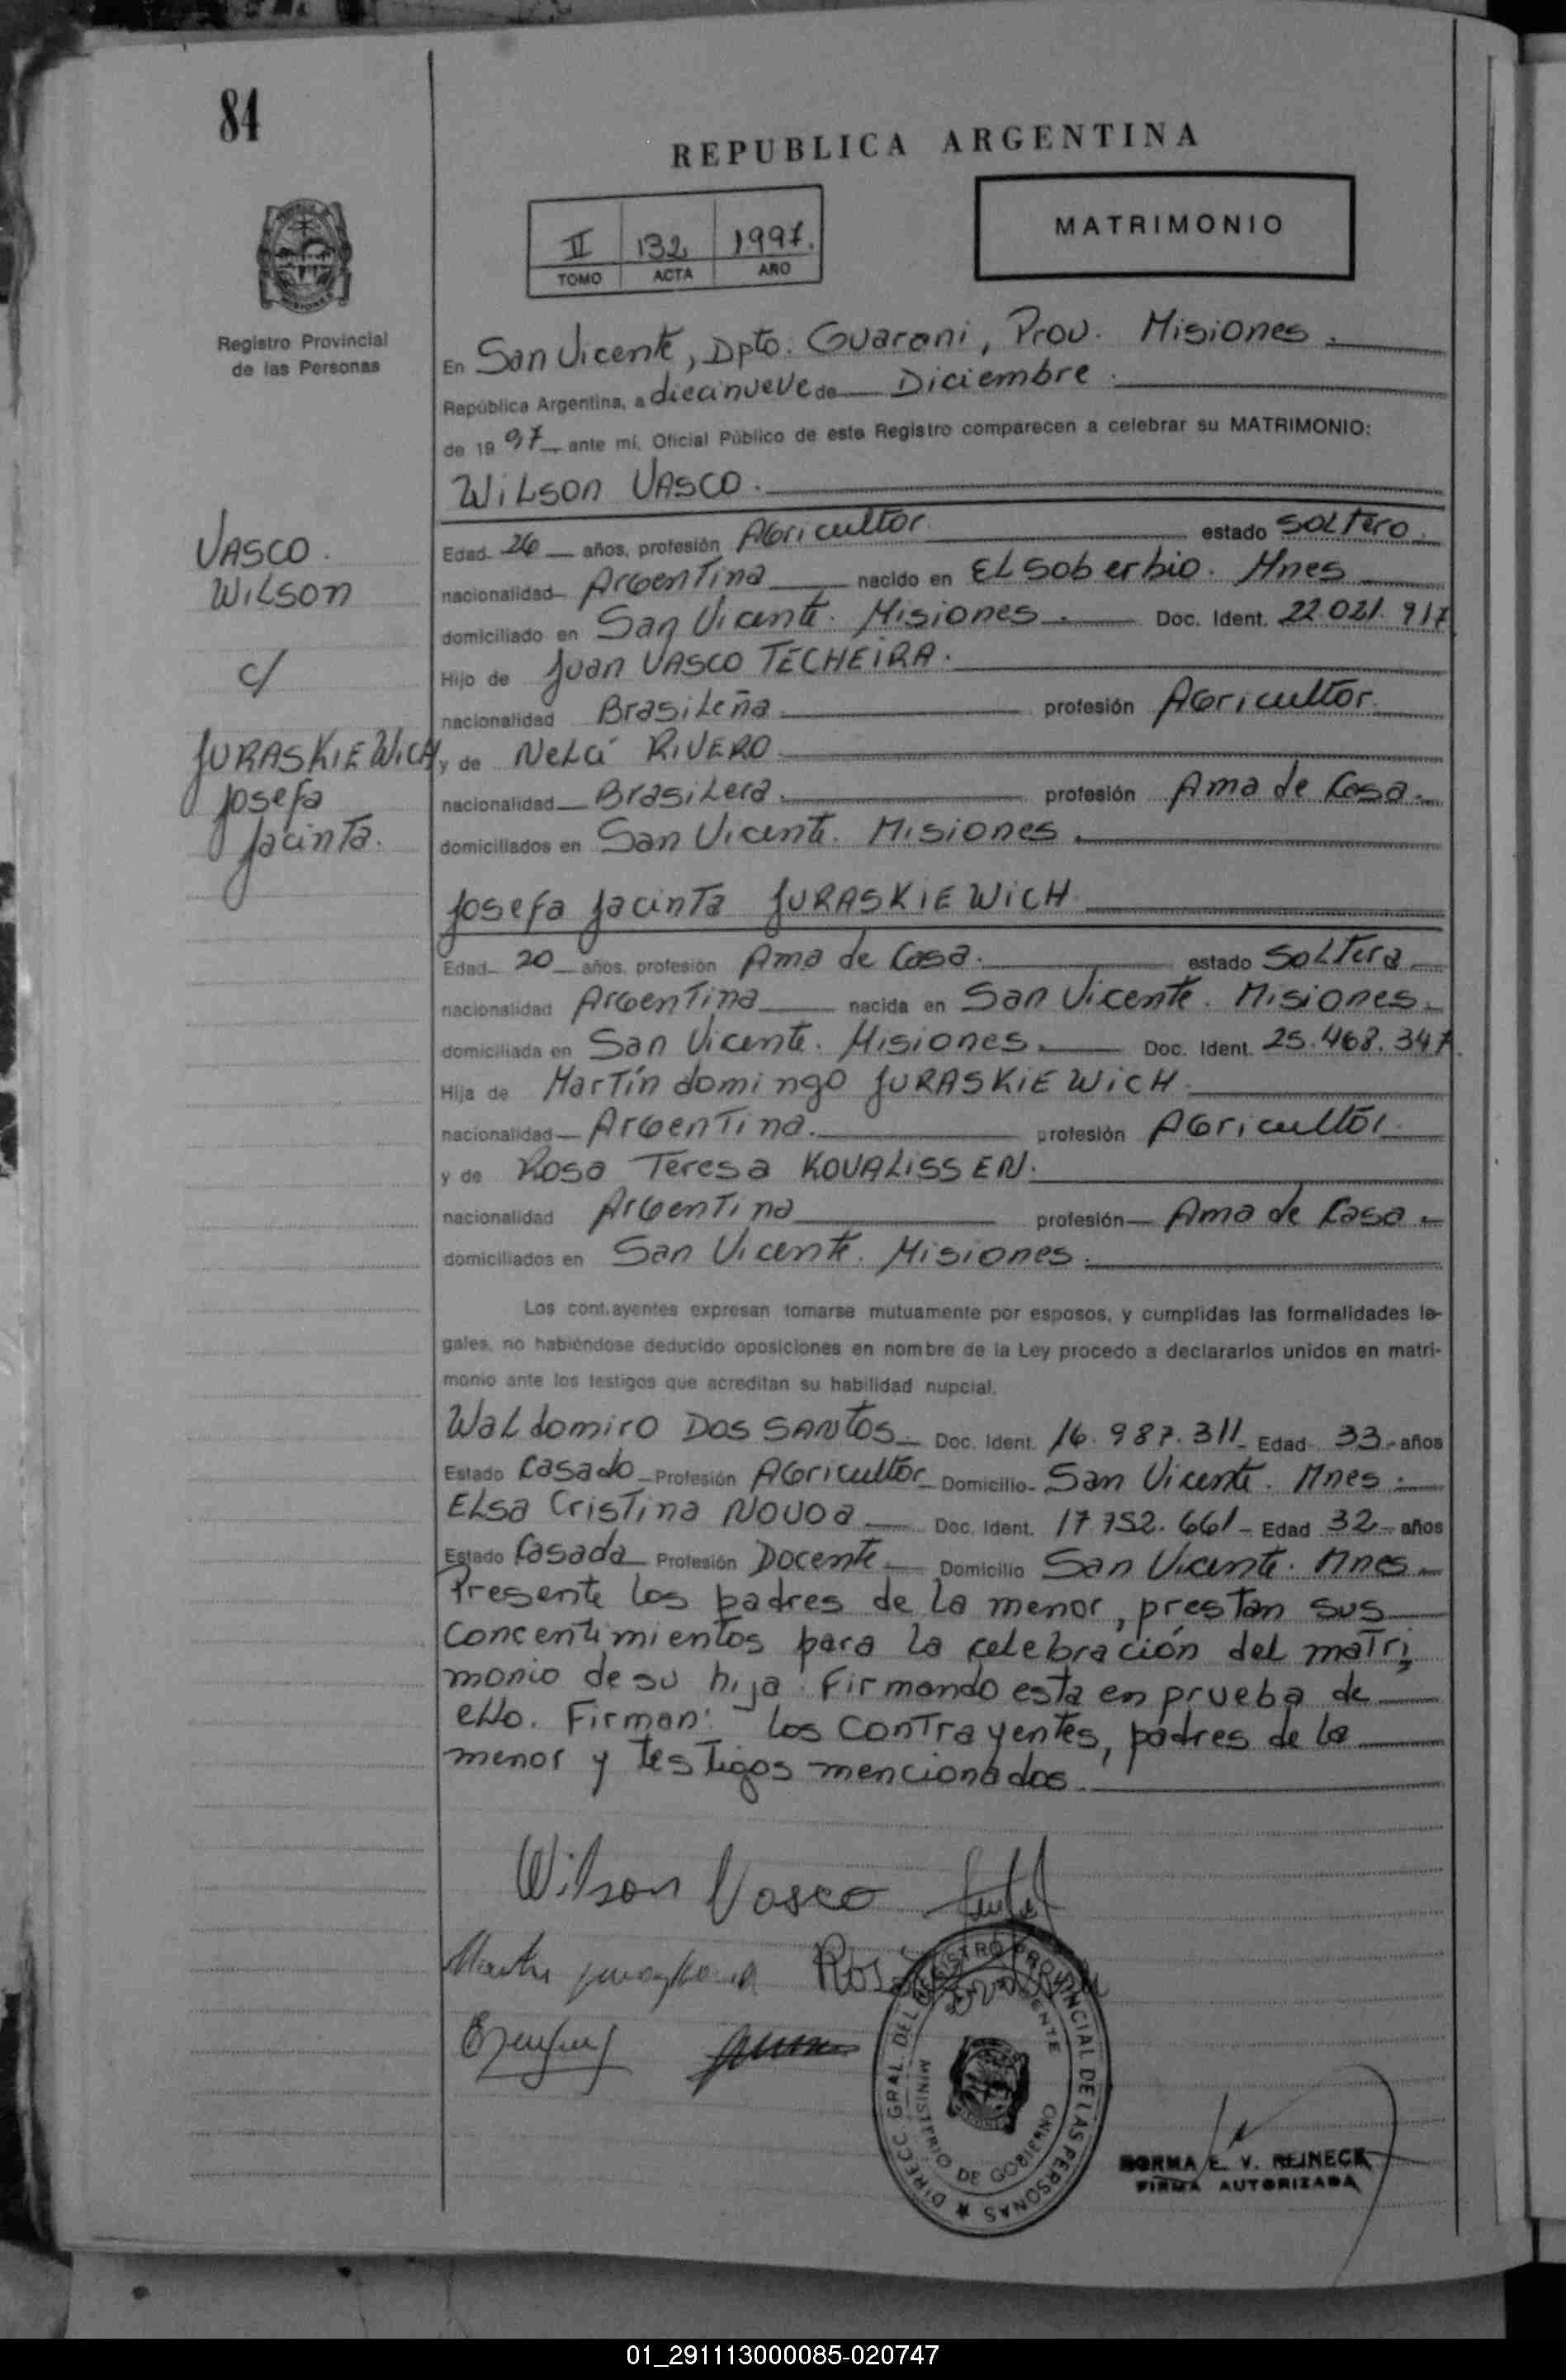 84
REPUBLICA ARGENTINA
II 132 1997.
TOMO ACTA AÑO
MATRIMONIO
MISIONES
Registro Provincial
de las Personas
En San Vicente, Dpto. Guarani, Prov. Misiones.
República Argentina, a diecinueve de Diciembre.
de 19 97 ante mí, Oficial Público de este Registro comparecen a celebrar su MATRIMONIO:
WiLson VASCO.
VASCO.
WiLson
c/
JURASKIEWicH
Josefa
Jacinta.
Edad 26 años, profesión Agricultor estado SoLtero.
nacionalidad Argentina nacido en EL Soberbio. Mnes
domiciliado en San Vicente. Misiones. Doc. Ident. 22.021.917
Hijo de Juan VASCO TECHEiRA.
nacionalidad BrasiLeña profesión Agricultor.
y de NeLci RiVERO
nacionalidad BrasiLera. profesión Ama de Casa.
domiciliados en San Vicente. Misiones.
Josefa Jacinta JURASKIEWicH
Edad 20 años, profesión Ama de Casa. estado SoLtera
nacionalidad Argentina nacida en San Vicente. Misiones.
domiciliada en San Vicente. Misiones. Doc. Ident. 25.468.347.
Hija de Martín domingo JURASKIEWicH.
nacionalidad Argentina. profesión Agricultor.
y de Rosa Teresa KOVALiSSEN.
nacionalidad Argentina profesión Ama de Casa.
domiciliados en San Vicente. Misiones.
Los contrayentes expresan tomarse mutuamente por esposos, y cumplidas las formalidades le-
gales, no habiéndose deducido oposiciones en nombre de la Ley procedo a declararlos unidos en matri-
monio ante los testigos que acreditan su habilidad nupcial.
WaLdomiro DOS SANTOS Doc. Ident. 16.987.311 Edad 33 años
Estado Casado Profesión Agricultor Domicilio San Vicente. Mnes.
ELsa Cristina NOVOa Doc. Ident. 17.752.661 Edad 32 años
Estado Casada Profesión Docente Domicilio San Vicente. Mnes.
Presente los padres de la menor, prestan sus
Concentimientos para la celebración del matri
monio de su hija. Firmando esta en prueba de
ello. Firman: los Contrayentes, padres de la
menor y testigos mencionados
Wilson Vasco
DIRECC. GRAL. DEL REGISTRO PROVINCIAL DE LAS PERSONAS
MINISTERIO DE GOBIERNO
NORMA E. V. REINECK
FIRMA AUTORIZADA
01_291113000085-020747